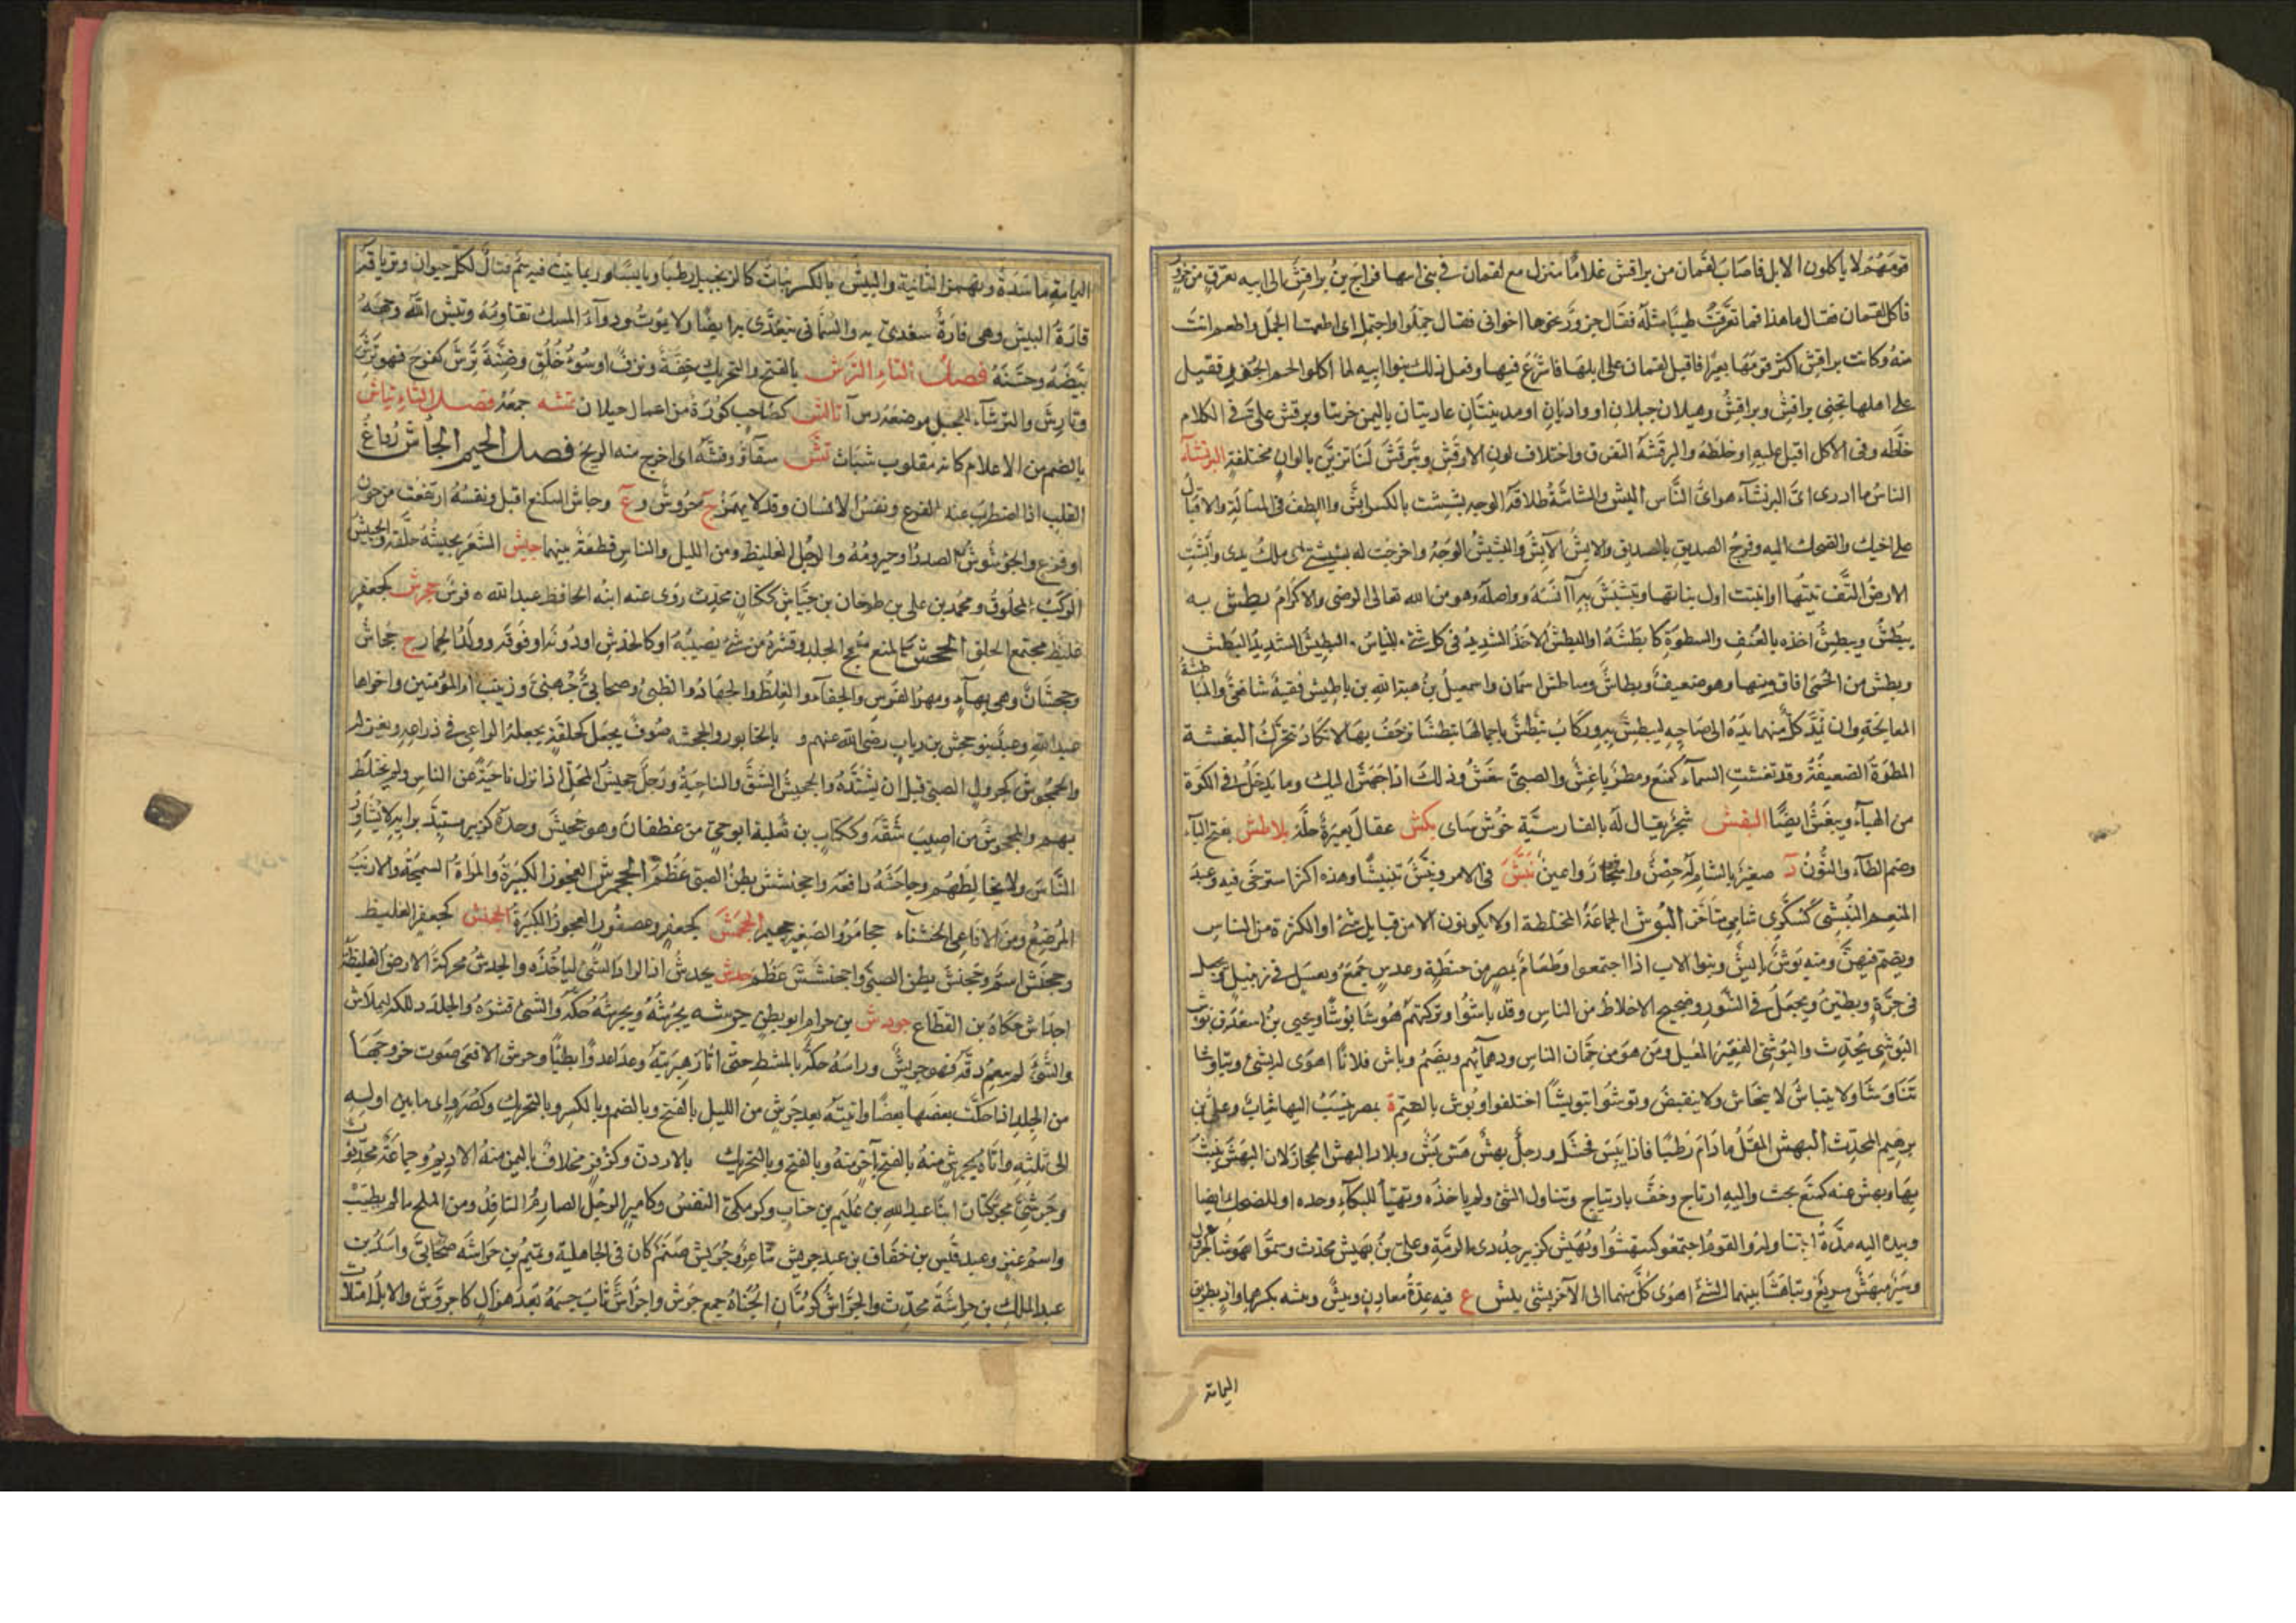 قومهم لا ياكلون الابل فاصاب لقمان من براقش غلاما فنزل مع لقمان في بني ابيها فراح بن براقش الى ابيه بعرق من جزور
فاكل لقمان فقال ما هذا فما تعرقت طيبا مثله فقال جزور نحرها اخوالي فقال جملوا واجتمل اى اطعمنا الجمل واطعم انت
منه وكانت براقش اكثر قومها بعيرا فاقبل لقمان على ابلها فاشرع فيها وفعل ذلك بنوا ابيه لما اكلوا لحم الجزور فقيل
على اهلها تجنى براقش وبراقش وهيلان جبلان او واديان او مدينتان عاديتان باليمن خربتا وبرقش على في الكلام
خلطه وفى الاكل اقبل عليه او خلطه والبرقشة التفرق واختلاف لون الارقش وتبرقش لنا تزين بالوان مختلفة البرنشآء
الناس ما ادرى اى البرنشآء هو اى الناس البش والبشاشة طلاقة الوجه بششت بالكسر ابش واللطف فى المسالة والاقبال
على اخيك والضحك اليه وفرح الصديق بالصديق والابش الآبش والبشيش الوجه واخرجت له بشيشتى اى ملك يدى وابشت
الارض التف نبتها او انبتت اول نباتها وتبشبش به آنسه وواصله وهو من الله تعالى الرضى والاكرام بطش به
يبطش ويبطش اخذه بالعنف والسطوة كابطشه او البطش الاخذ الشديد فى كل شئ والباس والبطيش الشديد البطش
وبطش من الحمى افاق منها وهو ضعيف وبطاش ومباطش اسمان واسمعيل بن هبة الله بن باطيش فقيه شافعى والمباطشة
المعالجة وان يمد كل منهما يده الى صاحبه ليبطش به وركاب تبطش باحمالها تبطشا تزحف بها لا تكاد تتحرك البغشة
المطرة الضعيفة وقد بغشت السمآء كمنع ومطر باغش والصبى بغش وذلك اذا اجهش اليك وما يدخل فى الكوة
من الهبآء ويبغش ايضا البقش شجر يقال له بالفارسية خوش ساى بكش عقال بعيره حله بلاطنش بفتح البآء
وضم الطآء والنون د صغير بالشام له حصن واشجار واعين نبش فى الامر وبنش تبنيشا وهذه اكثر استرخى فيه وعبد
المنعم البنشى كسكرى شامى متاخر البوش الجماعة المختلطة او لا يكونون الا من قبايل شتى او الكثرة من الناس
ويضم فيهن ومنه بوش بايش وبنوا الاب اذا اجتمعوا وطعام بمصر من حنطة وعدس يجمع ويغسل فى زنبيل ويجعل
فى جرة ويطين ويجعل فى التنور وضجيج الاخلاط من الناس وقد باشوا وتركتهم هوشا بوشا ويحيى بن اسعد بن بوش
البوشى محدث والبوشى الفقير المعيل ومن هو من خمان الناس ودهمآئهم ويضم وباش فلانا اهوى له بشئ وتباوشا
تناوشا ولا يتباش لا ينحاش ولا ينقبض وتوشوا تبويشا اختلفوا وبوش بالضم ة بمصر ينسب اليها ثياب وعلى بن
برهيم المحدث البهش المقل ما دام رطبا فاذا يبس فخشل ورجل بهش هش بش وبلاد البهش الحجاز لان البهش ينبت
بها وبهش عنه كمنع بحث واليه ارتاح وخف بارتياح وتناول الشئ ولم ياخذه وتهيأ للبكآء وحده او للضحك ايضا
وبيده اليه مدها ليتناوله والقوم اجتمعوا كتبهشوا وبهيش كزبير جد ذى الرمة وعلى بن بهيش محدث وسموا
وسير مبهش سريع وتباهشا بينهما الشئ اهوى كل منهما الى الآخر بشئ بيش ع فيه عدة معادن وبيش وبيشه بكسرهما واد بطريق
اليمامة
اليمامة ماسدة وتهمز الثانية والبيش بالكسر نبات كالزنجبيل رطبا ويابسا وربما نبت فيه سم قتال لكل حيوان وترياقه
فارة البيش وهى فارة تتغذى به والسمانى تتغذى به ايضا ولا يموت ودوآء المسك تقاومه وبيش الله وجهه
بيضه وحسنه فصل التاء الترش بالفتح والتحريك خفة ونزق او سوء خلق وضنة ترش كفرح فهو ترش
وتارش والترشآء الحبل موضعه رس آ تالش كصاحب كورة من اعمال جيلان تشه جمعه فصل الثاء ثباش
بالضم من الاعلام كانه مقلوب شباث ثش سقآؤه وفشه اى اخرج منه الريح فصل الجيم الجاش رواغ
القلب اذا اضطرب عند الفزع ونفس الانسان وقد لا يهمز ج جؤوش وع وجاش كمنع اقبل ونفسه ارتفعت من حزن
او فزع والجؤشوش الصدر او حيزومه والرجل الغليظ ومن الليل والناس قطعة بينهما جبش الشعر يجبشه حلقه والجبيش
الركب المحلوق ومحمد بن على بن طرخان بن جباش ككتان محدث روى عنه ابنه الحافظ عبد الله ه فرس جحرش كجعفر
غليظ مجتمع الخلق الجحش كالمنع سحج الجلد وقشره من شئ يصيبه او كالخدش او دونه او فوقه وولد الحمار ج جحاش
وجحشان وهى بهآء ومهر الفرس والجفآء والغلظ والجهاد والظبى وصحابى جهنى وزينب ام المؤمنين واخواها
عبد الله وعبد بنو جحش بن رياب رضى الله عنهم و بالخابور والجحشه صوف يجعل كحلقة يجعله الراعى فى ذراعه ويغزله
والجحوش كجرول الصبى قبل ان يشتد والجحيش الشق والناحية ورجل جحيش المحل اذا نزل ناحية عن الناس ولم يختلط
بهم والمجحوش من اصيب شقه وككتاب بن ثعلبة ابو حى من غطفان وهو جحيش وحده كزبير مستبد برايه لا يشاور
الناس ولا يخالطهم وجاحشه دافعه واجحنشش بطن الصبى عظم الجحمرش العجوز الكبيرة والمراة السمجة والارنب
المرضع ومن الافاعى الخشنآء ج جحامر والصغير جحيمر الجحمش كجعفر وعصفور العجوز الكبيرة الجحنش كجعفر الغليظ
وجحنش اسم وتجحنش بطن الصبى واجحنشش عظم جدش يجدش اذا اراد الشئ لياخذه والجدش محركة الارض الغليظة
ج اجداش حكاه بن القطاع جردش بن حرام ابو بطن جرشه يجرشه ويجرشه حكه والشئ قشره والجلد دلكه ليملاس
والشئ لم ينعم دقه فهو جريش وراسه حكه بالمشط حتى اثار هبريته وعدا عدوا بطيئا وجرش الافعى صوت خروجها
من الجلد اذا حكت بعضها بعضا واتيته بعد جرش من الليل بالفتح وبالضم وبالكسر وبالتحريك وكصرد اى ما بين اوله
الى ثلثه واتاه بجرش منه بالفتح بآخر منه وبالفتح وبالتحريك بالاردن وكزفر مخلاف باليمن منه الاديم وجماعة محدثون
وجرشى مجركتان ابنا عبد الله بن عليم بن جناب وكزمكى النفس وكامير الرجل الصارم النافذ ومن الملح ما لم يطيب
واسم عنز وعبد قيس بن خفاف بن عبد جريش شاعر وجريش صنم كان فى الجاهلية وتميم بن جراشه صحابى واسد بن
عبد الملك بن جراشة محدث والجراش كرمان الجناة جمع جرش واجراش ثاب جسمه بعد هزال كاجروش والابل امتلات